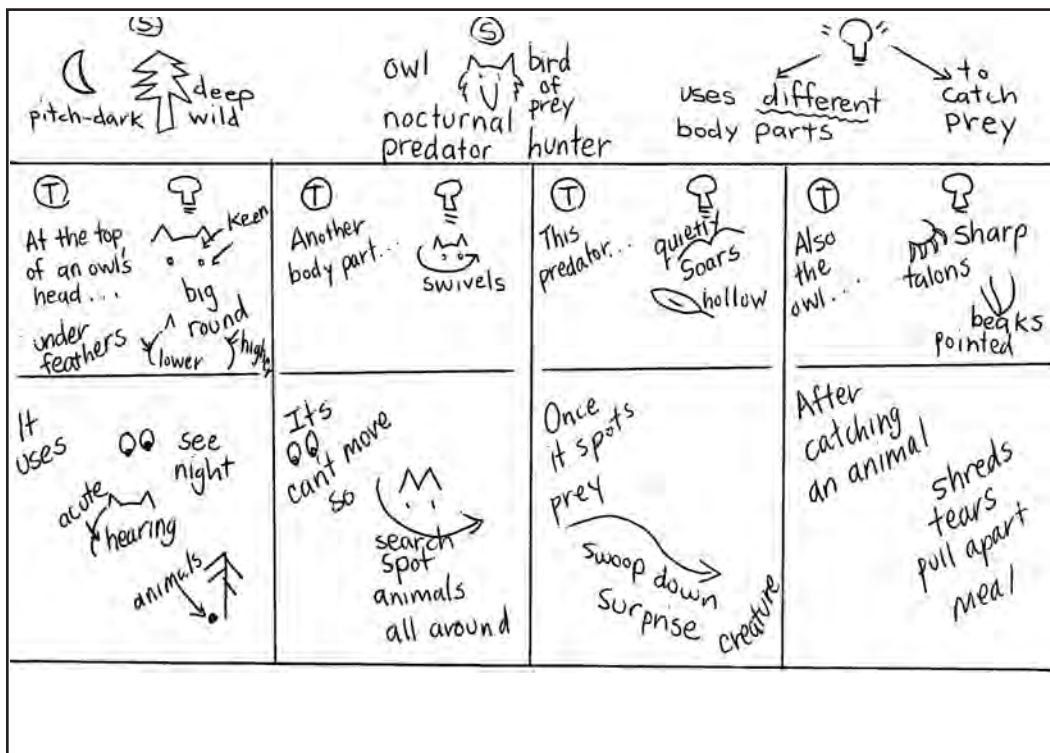 S
pitch-dark
deep
wild
S
owl
bird
of
prey
nocturnal
predator
hunter
uses different
body parts
to
catch
prey
T
At the top
of an owl's
head...
under
feathers
keen
big
round
lower
higher
T
Another
body part...
swivels
T
This
predator...
quietly
soars
hollow
T
Also
the
owl....
sharp
talons
beaks
pointed
It
uses
see
night
acute
hearing
animals
Its
can't move
so
search
spot
animals
all around
Once
it spots
prey
swoop down
surprise
creature
After
catching
an animal
shreds
tears
pull apart
meal